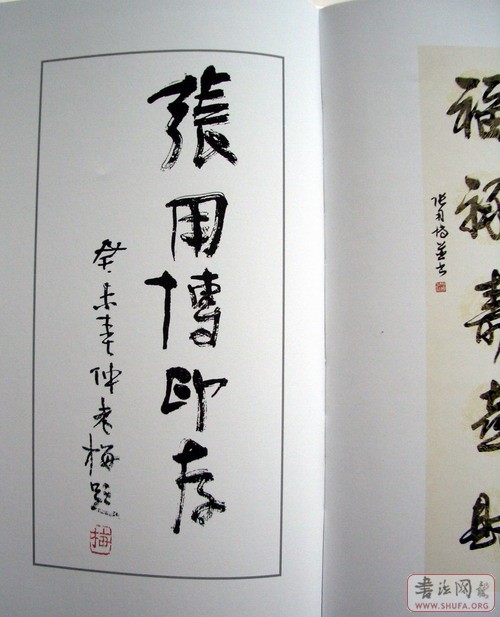 張用博印存
癸未春仲老梅題
梅
福祿壽喜財
張用博並书
書法网報
WWW.SHUFA.ORG